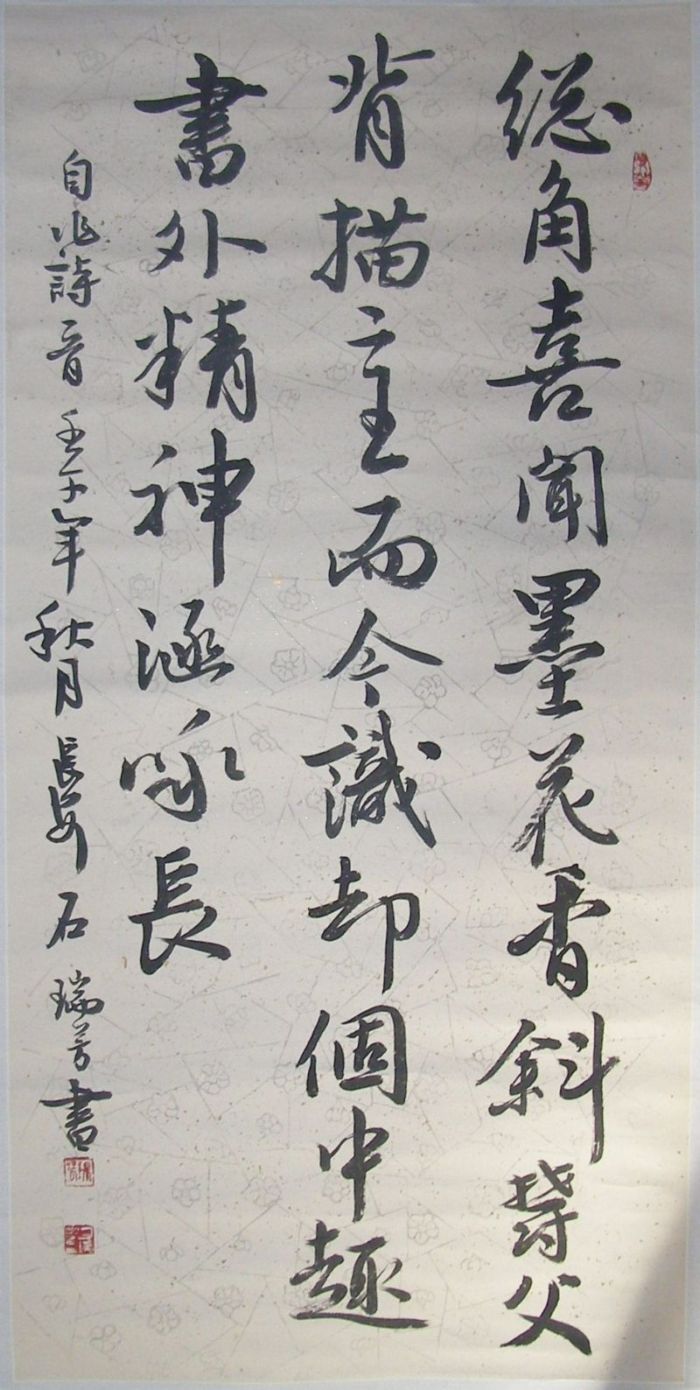 総角喜聞墨花香斜父
背描二王而今識却個中趣
書外精神涵咏長
自作詩一首壬午年秋月長安石瑞芳書